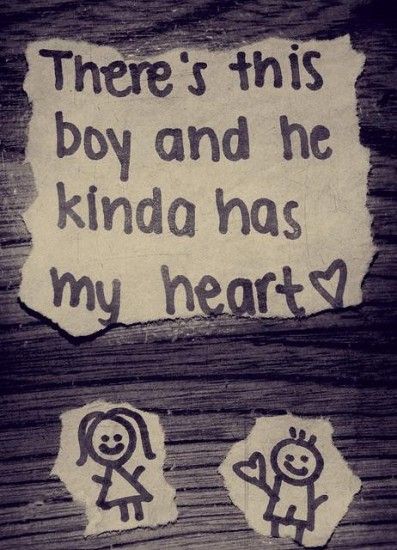 There's this
boy and he
kinda has
my heart♡